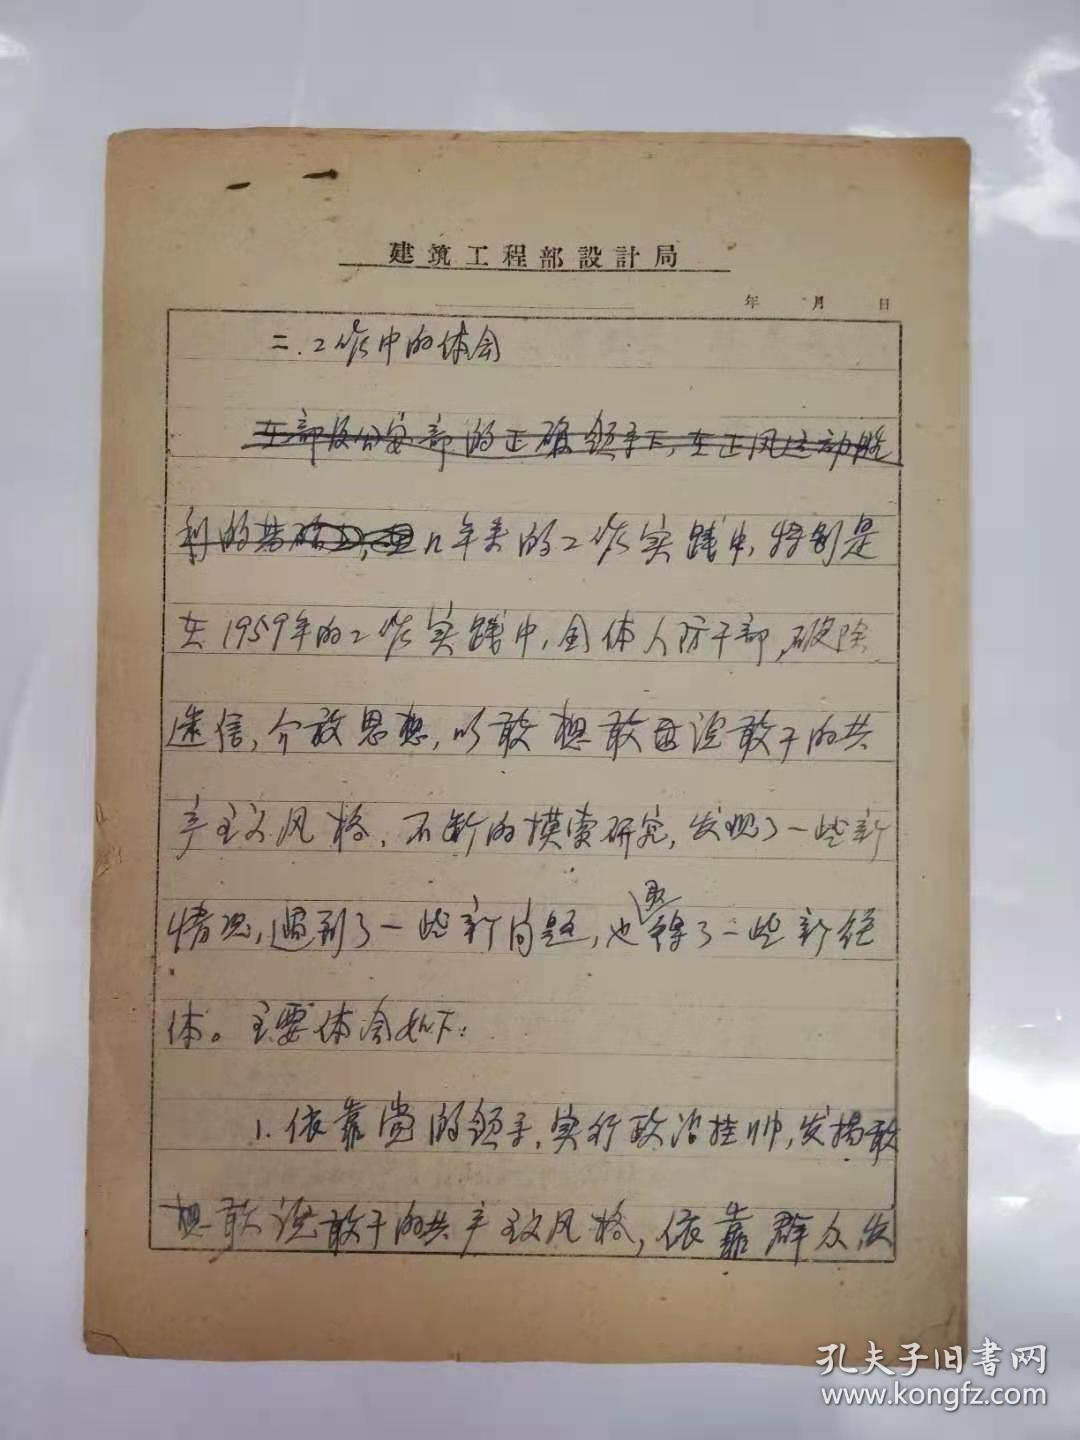 建筑工程部設計局
年 月 日
二.工作中的体会
在部及公安部的正确领导下,在正风运动胜
利的基础上, 几年来的工作实践中,特别是
在1959年的工作实践中,全体人防干部,破除
迷信,介放思想,以敢想敢说敢干的共
产主义风格,不断的摸索研究,发现了一些新
情况,遇到了一些新问题,也取得了一些新经
体。主要体会如下:
1.依靠党的领导,实行政治挂帅,发揚敢
想敢说敢干的共产主义风格,依靠群众发
孔夫子旧書网
www.kongfz.com